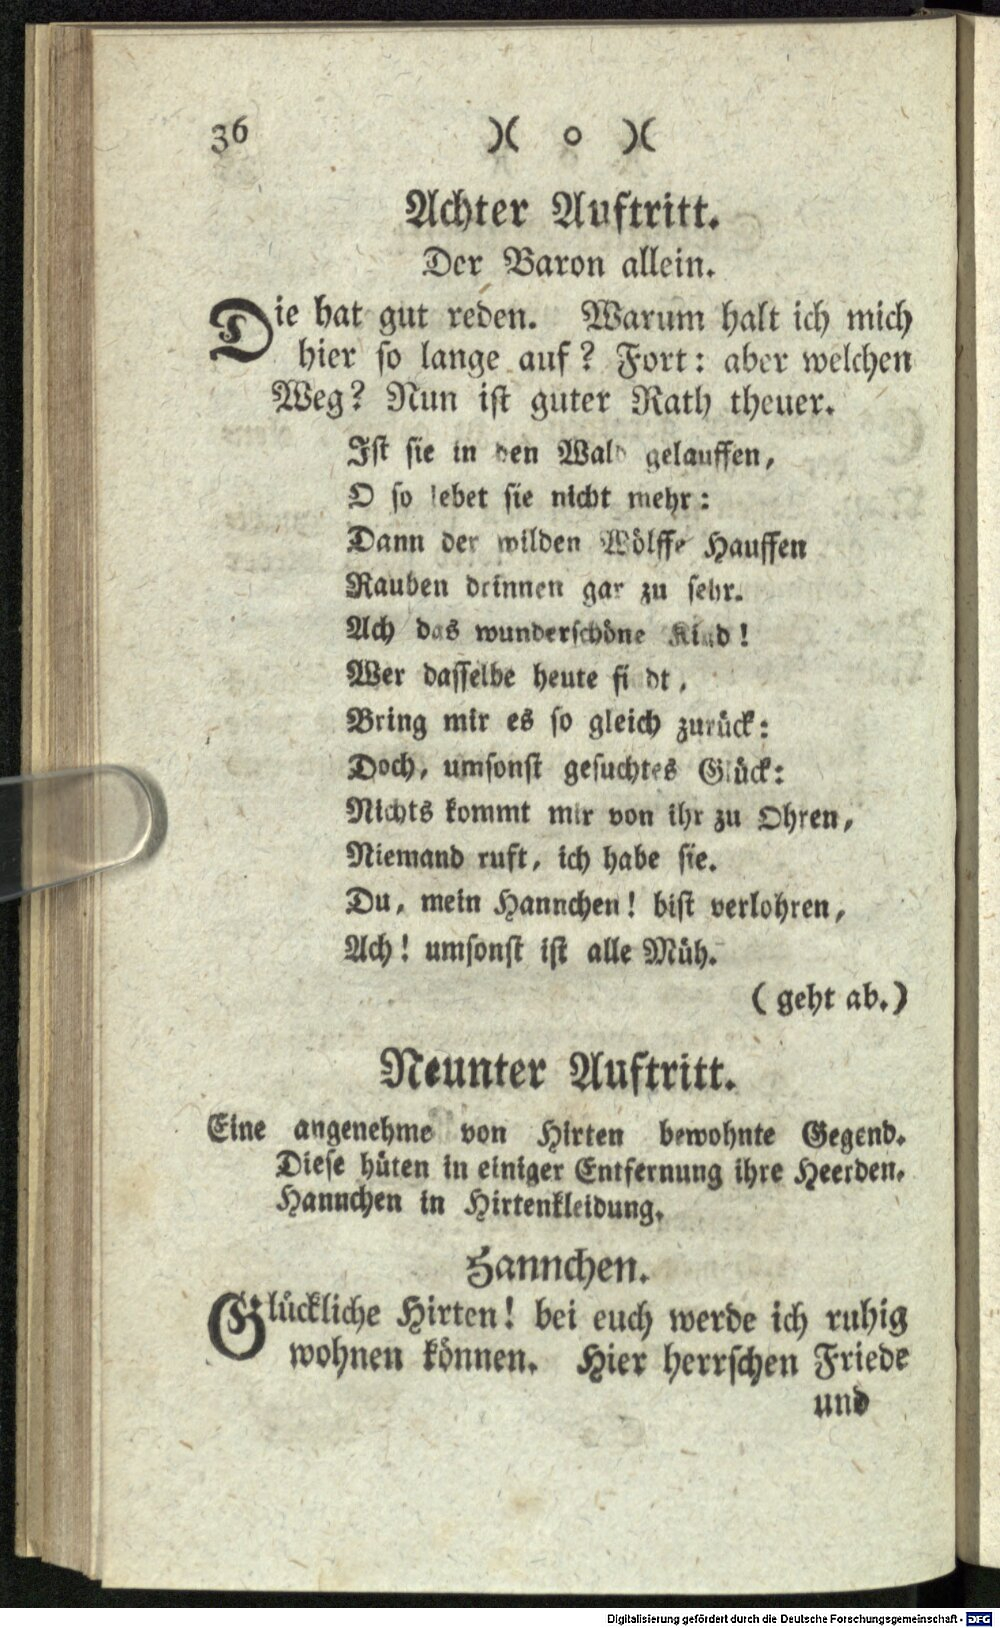 36 )( o )(
Achter Auftritt.
Der Baron allein.
Die hat gut reden. Warum halt ich mich
hier so lange auf? Fort: aber welchen
Weg? Nun ist guter Rath theuer.
Ist sie in den Wald gelauffen,
O so lebet sie nicht mehr:
Dann der wilden Wölffe Hauffen
Rauben drinnen gar zu sehr.
Ach das wunderschöne Kind!
Wer dasselbe heute findt,
Bring mir es so gleich zurück:
Doch, umsonst gesuchtes Glück:
Nichts kommt mir von ihr zu Ohren,
Niemand ruft, ich habe sie.
Du, mein Hannchen! bist verlohren,
Ach! umsonst ist alle Müh.
(geht ab.)
Neunter Auftritt.
Eine angenehme von Hirten bewohnte Gegend.
Diese hüten in einiger Entfernung ihre Heerden.
Hannchen in Hirtenkleidung.
Hannchen.
Glückliche Hirten! bei euch werde ich ruhig
wohnen können. Hier herrschen Friede
und
Digitalisierung gefördert durch die Deutsche Forschungsgemeinschaft - DFG